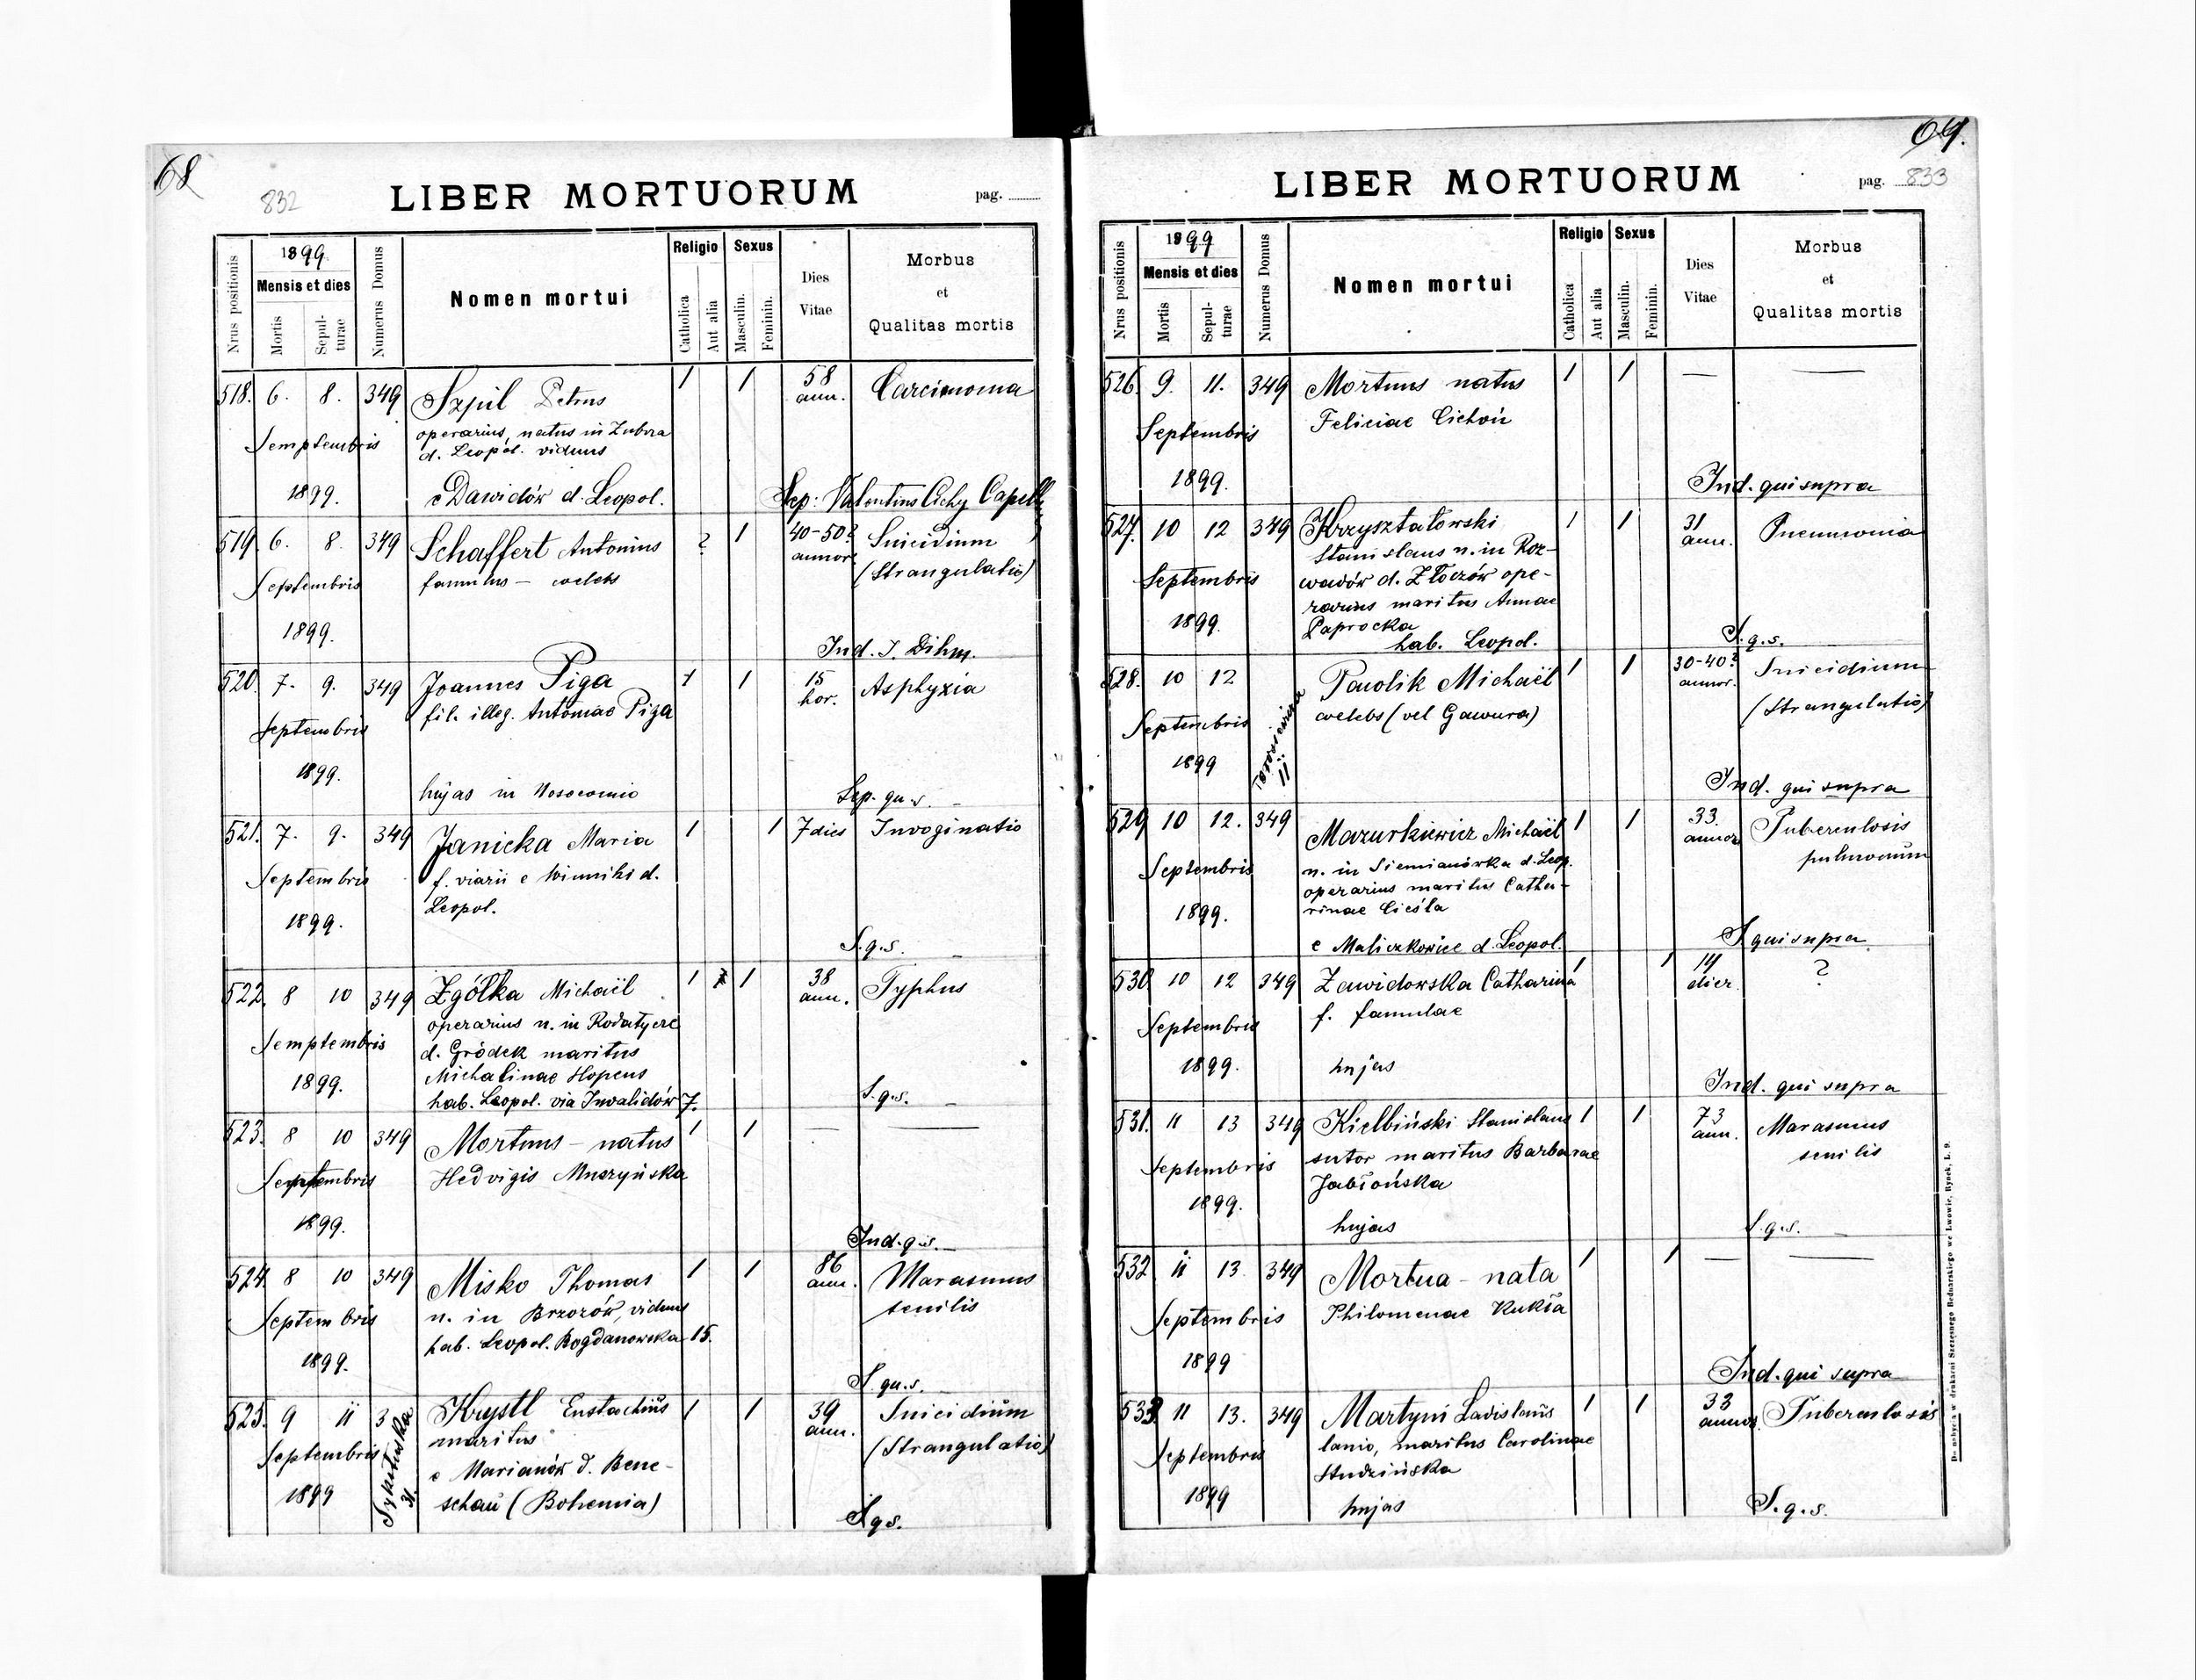 68
832
LIBER MORTUORUM
pag.
Nrus positionis
1899.
Mensis et dies
Mortis
Sepul-
turae
Numerus Domus
Nomen mortui
Religio
Catholica
Aut alia
Sexus
Masculin.
Feminin.
Dies
Vitae
Morbus
et
Qualitas mortis
518. 6. 8. 349 Szpil Petrus 1 1 58 Carcinoma
ann.
operarius, natus in Zubrza
Semptembris d. Leopol. viduus
1899. e Dawidów d. Leopol. Sep: Valentinus Cichy Capell
519. 6. 8. 349 Schaffert Antonius ? 1 40-50? Suicidium
annor. (Strangulatio)
Septembris famulus - coelebs
1899. Ind. J. Dihm.
520. 7. 9. 349 Joannes Piga 1 1 15 Asphyxia
hor.
fil. illeg. Antoniae Piga
Septembris
1899. hujas in Nosocomio Sep. qu. s.
521. 7. 9. 349 Janicka Maria 1 1 7 dies Invoginatio
Septembris f. viarii e Winniki d.
1899. Leopol. S. q. s.
522. 8 10 349 Zgółka Michaël 1 1 38 Typhus
ann.
operarius n. in Rodatycze
Semptembris d. Gródek maritus
1899. Michalinae Hopcus
hab. Leopol. via Invalidów 7. S. q. s.
523. 8 10 349 Mortuus - natus 1 1 — —
Septembris Hedvigis Muszyńska
1899. Ind. q. s.
524. 8 10 349 Misko Thomas 1 1 86 Marasmus
ann. senilis
Septembris n. in Brzozów, viduus
1899. hab. Leopol. Bogdanowska 15. S. qu. s.
525. 9 11 3 Krystl Eustachius 1 1 39 Suicidium
ann. (Strangulatio)
Sykstuska 31.
Septembris maritus
e Marianów d. Bene-
1899 schau (Bohemia) S q s.
69.
LIBER MORTUORUM
pag. 833
Nrus positionis
1899
Mensis et dies
Mortis
Sepul-
turae
Numerus Domus
Nomen mortui
Religio
Catholica
Aut alia
Sexus
Masculin.
Feminin.
Dies
Vitae
Morbus
et
Qualitas mortis
526. 9. 11. 349 Mortuus natus 1 1 — —
Septembris Feliciae Cichoń
1899. Ind. qui supra
527. 10 12 349 Krzyształowski 1 1 31 Pneumonia
ann.
Stanislaus n. in Roz-
Septembris wadów d. Złoczów ope-
rarius maritus Annae
1899. Paprocka
hab. Leopol. S. q. s.
528. 10 12 Pawlik Michaël 1 1 30-40? Suicidium
annor. (Strangulatio)
11
Septembris coelebs (vel Gawura)
1899 Ind. qui supra
529 10 12. 349 Mazurkiewicz Michaël 1 1 33. Tuberculosis
annor pulmonum
Septembris n. in Siemianówka d. Leop.
operarius maritus Catha-
1899. rinae Cieśla
e Maliczkowice d. Leopol. S qui supra
530 10 12 349 Zawidowska Catharina 1 1 14 ?
dier.
Septembris f. famulae
1899. hujas Ind. qui supra
531. 11 13 349 Kiełbiński Stanislaus 1 1 73 Marasmus
ann. senilis
Septembris sutor maritus Barbarae
Jabłońska
1899. hujas S. q. s.
532 11 13 349 Mortua - nata 1 1 — —
Septembris Philomenae Kukła
1899 Ind. qui supra
533 11 13. 349 Martyni Ladislaus 1 1 33 Tuberculosis
annor.
Septembris lanio, maritus Carolinae
Studzińska
1899 hujas S. q. s.
Do nabycia w drukarni Szczęsnego Bednarskiego we Lwowie, Rynek, L. 9.